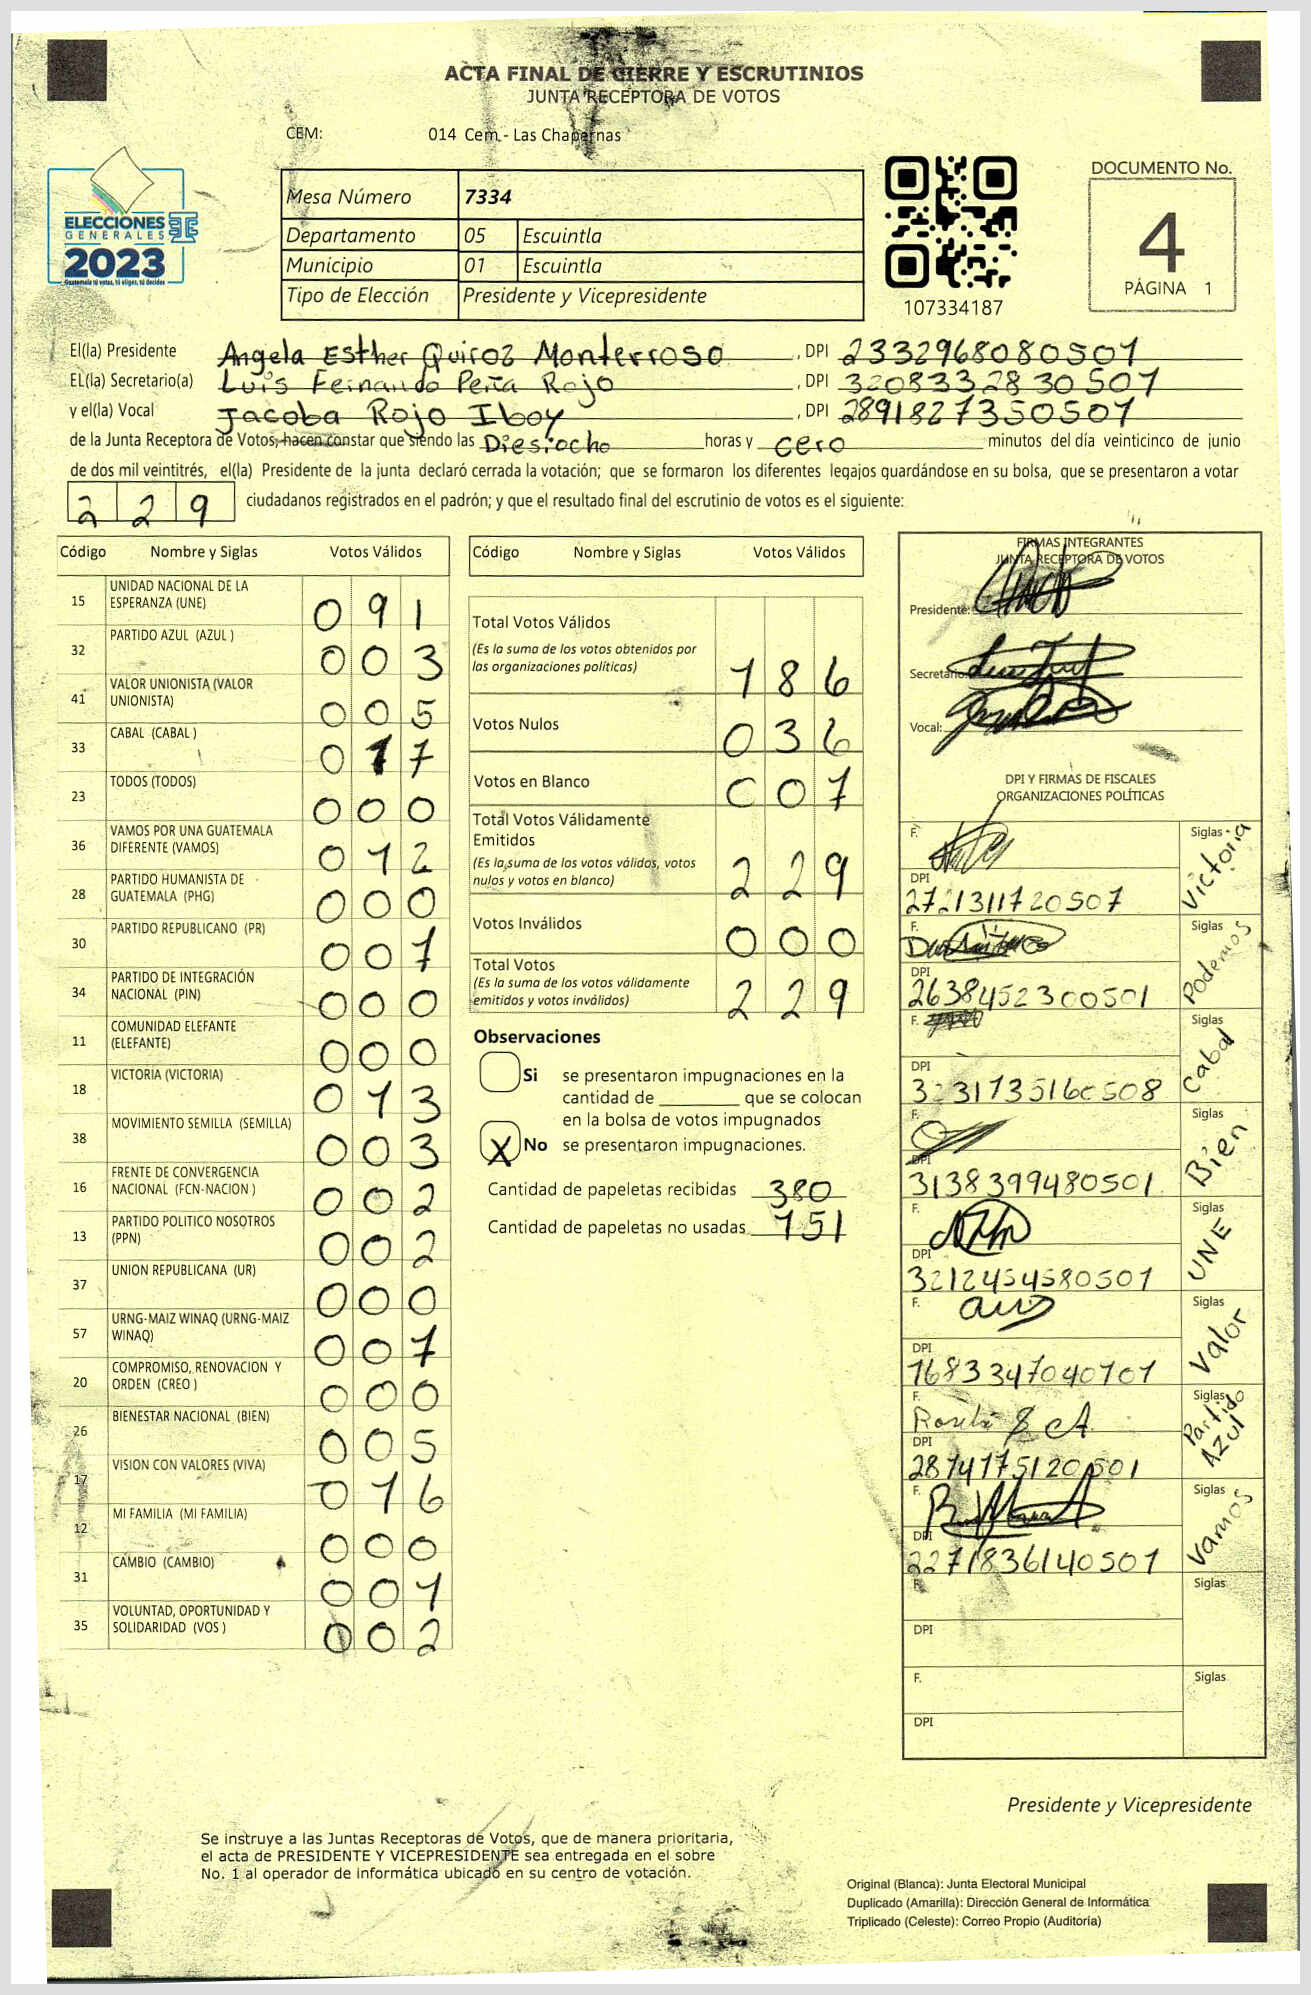 ACTA FINAL DE CIERRE Y ESCRUTINIOS
JUNTA RECEPTORA DE VOTOS
CEM: 014 Cem.- Las Chapernas
ELECCIONES
GENERALES
2023
Guatemala tú votas, tú eliges, tú decides
Mesa Número 7334
Departamento 05 Escuintla
Municipio 01 Escuintla
Tipo de Elección Presidente y Vicepresidente
107334187
DOCUMENTO No.
4
PÁGINA 1
El(la) Presidente Angela Esther Quiroz Monterroso, DPI 2332968080501
EL(la) Secretario(a) Luis Fernando Peña Rojo, DPI 3208332830507
y el(la) Vocal Jacoba Rojo Iboy, DPI 2891827350501
de la Junta Receptora de Votos, hacen constar que siendo las Diesiocho horas y cero minutos del día veinticinco de junio
de dos mil veintitrés, el(la) Presidente de la junta declaró cerrada la votación; que se formaron los diferentes legajos guardándose en su bolsa, que se presentaron a votar
229 ciudadanos registrados en el padrón; y que el resultado final del escrutinio de votos es el siguiente:
Código Nombre y Siglas Votos Válidos
15 UNIDAD NACIONAL DE LA ESPERANZA (UNE) 091
32 PARTIDO AZUL (AZUL ) 003
41 VALOR UNIONISTA (VALOR UNIONISTA) 005
33 CABAL (CABAL ) 017
23 TODOS (TODOS) 000
36 VAMOS POR UNA GUATEMALA DIFERENTE (VAMOS) 012
28 PARTIDO HUMANISTA DE GUATEMALA (PHG) 000
30 PARTIDO REPUBLICANO (PR) 007
34 PARTIDO DE INTEGRACIÓN NACIONAL (PIN) 000
11 COMUNIDAD ELEFANTE (ELEFANTE) 000
18 VICTORIA (VICTORIA) 013
38 MOVIMIENTO SEMILLA (SEMILLA) 003
16 FRENTE DE CONVERGENCIA NACIONAL (FCN-NACION ) 002
13 PARTIDO POLITICO NOSOTROS (PPN) 002
37 UNION REPUBLICANA (UR) 000
57 URNG-MAIZ WINAQ (URNG-MAIZ WINAQ) 007
20 COMPROMISO, RENOVACION Y ORDEN (CREO ) 000
26 BIENESTAR NACIONAL (BIEN) 005
17 VISION CON VALORES (VIVA) 016
12 MI FAMILIA (MI FAMILIA) 000
31 CAMBIO (CAMBIO) 001
35 VOLUNTAD, OPORTUNIDAD Y SOLIDARIDAD (VOS ) 002
Código Nombre y Siglas Votos Válidos
Total Votos Válidos 186
(Es la suma de los votos obtenidos por
las organizaciones políticas)
Votos Nulos 036
Votos en Blanco 007
Total Votos Válidamente
Emitidos 229
(Es la suma de los votos válidos, votos
nulos y votos en blanco)
Votos Inválidos 000
Total Votos 229
(Es la suma de los votos válidamente
emitidos y votos inválidos)
Observaciones
Si se presentaron impugnaciones en la
cantidad de ________ que se colocan
en la bolsa de votos impugnados
X No se presentaron impugnaciones.
Cantidad de papeletas recibidas 380
Cantidad de papeletas no usadas 151
FIRMAS INTEGRANTES
JUNTA RECEPTORA DE VOTOS
Presidente:
Secretario:
Vocal:
DPI Y FIRMAS DE FISCALES
ORGANIZACIONES POLÍTICAS
F. Siglas Victoria
DPI 2721311720507
F. Siglas Podemos
DPI 2638452300501
F. Siglas Cabal
DPI 3231735160508
F. Siglas Bien
DPI 3138399480501
F. Siglas UNE
DPI 3212454580501
F. Siglas Valor
DPI 1683347040101
F. Siglas Partido Azul
DPI 2874175120501
F. Siglas Vamos
DPI 2271836140501
F. Siglas
DPI
F. Siglas
DPI
Presidente y Vicepresidente
Se instruye a las Juntas Receptoras de Votos, que de manera prioritaria,
el acta de PRESIDENTE Y VICEPRESIDENTE sea entregada en el sobre
No. 1 al operador de informática ubicado en su centro de votación.
Original (Blanca): Junta Electoral Municipal
Duplicado (Amarilla): Dirección General de Informática
Triplicado (Celeste): Correo Propio (Auditoría)